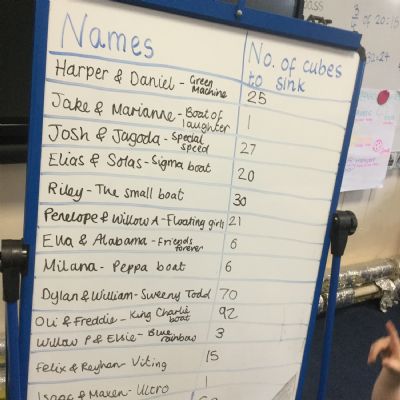 Names
No. of cubes to sink
Harper & Daniel - Green Machine 25
Jake & Marianne - Boat of laughter 1
Josh & Jagoda - Special speed 27
Elias & Solas - Sigma boat 20
Riley - The small boat 30
Penelope & Willow A - Floating girls 21
Ella & Alabama - Friends forever 6
Milana - Peppa boat 6
Dylan & William - Sweeny Todd 70
Oli & Freddie - King Charlie boat 92
Willow P & Elsie - Blue rainbow 3
Felix & Reyhan - Viting 15
Isaac & Maxen - Ultro 1
of 20=15